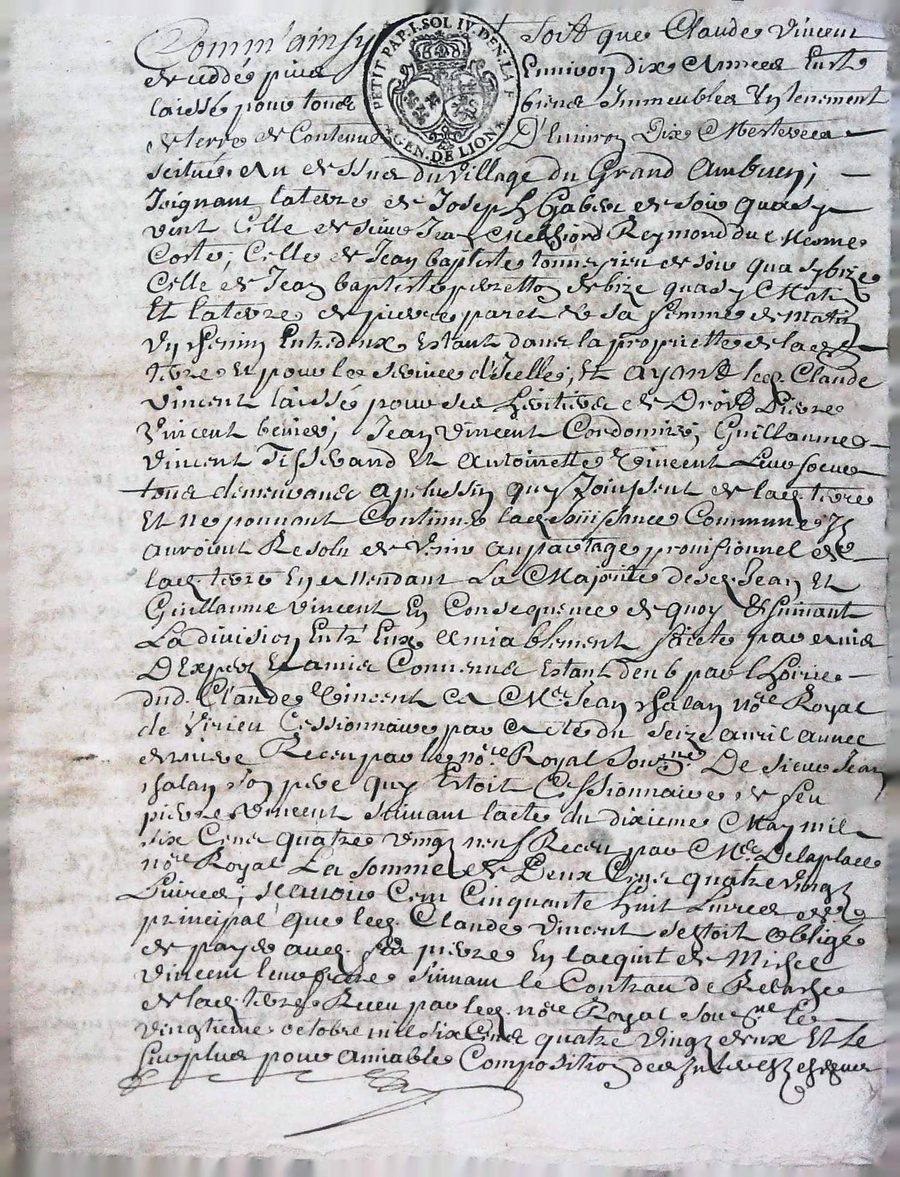 PETIT PAP. 1. SOL IV. DEN. LA F
GEN. DE LION
Comm'ainsy soit que Claude Vincent
decedé puis Environ dix Années Eust
laissé pour tous biens Immeubles Un tenement
de terre de Contenue D'Environ Dix Mesterees
scitué au dessus du Village du Grand Ambuen;
Joignant la terre de Joseph Gabet de soir quasy
vent Celle de sieur Jean Melchiord Reymond du Mesme
Costé; Celle de Jean baptiste de soir quasy bize
Celle de Jean baptiste peyretton de bize quasy Matin
Et la terre de pierre paret de sa femme de Matin
Un chemin Entredeux Estant dans la propriette de lad.
terre Et pour le service d'Icelle; Et ayant led. Claude
Vincent laissé pour ses heritiers de Droit Pierre
Vincent Jean Vincent Cordonnier; Guillaume
Vincent Tisserand Et Antoinette Vincent Leur soeur
tous demeurans a pelussin quy Joüissent de lad. terre
Et ne pouvant Continuer lad. Joüissance Commune Ils
auroient Resolu de Venir au partage provisionnel de
lad. terre En attendant La Majorité desd. Jean Et
Guillaume Vincent En Consequence de quoy Et suivant
La division Entr'Eux Amiablement faicte par avis
D'Expert Et amis Convenus Estant deub par l'hoirie
dud. Claude Vincent a Mre. Jean Chalan nore. Royal
de Virieu Cessionnaire par Acte du seize avril année
derniere Receu par le nore. Royal soubne. De sieur Jean
Chalan son pere quy Estoit Cessionnaire de feu
pierre Vincent suivant l'acte du dixieme May mil
six Cens quatre vingt neuf Receu par Me. Delaplace
nore. Royal La somme de Deux Cens quatre vingt
Livres; scavoir Cent Cinquante huit Livres de
principal que led. Claude Vincent sestoit obligé
de payer avec led. pierre En l'acquit de Michel
Vincent leur frere suivant le Contrau de
de lad. terre Receu par led. nore. Royal soubne. le
vingtieme octobre mil six Cens quatre vingt deux Et le
surplus pour amiable Composition des Interests